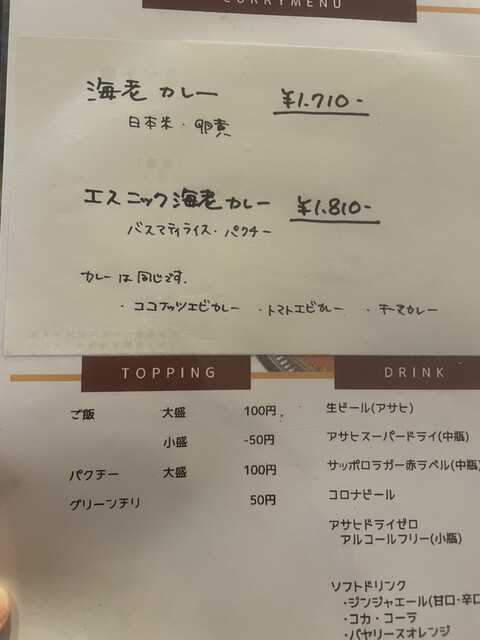 CURRYMENU
海老カレー ¥1.710-
日本米・卵黄
エスニック海老カレー ¥1.810-
バスマティライス・パクチー
カレーは同じです.
・ココナッツエビカレー ・トマトエビカレー ・キーマカレー
TOPPING
ご飯 大盛 100円
小盛 -50円
パクチー 大盛 100円
グリーンチリ 50円
DRINK
生ビール(アサヒ)
アサヒスーパードライ(中瓶)
サッポロラガー赤ラベル(中瓶)
コロナビール
アサヒドライゼロ
アルコールフリー(小瓶)
ソフトドリンク
・ジンジャエール(甘口・辛口
・コカ・コーラ
・バヤリースオレンジ